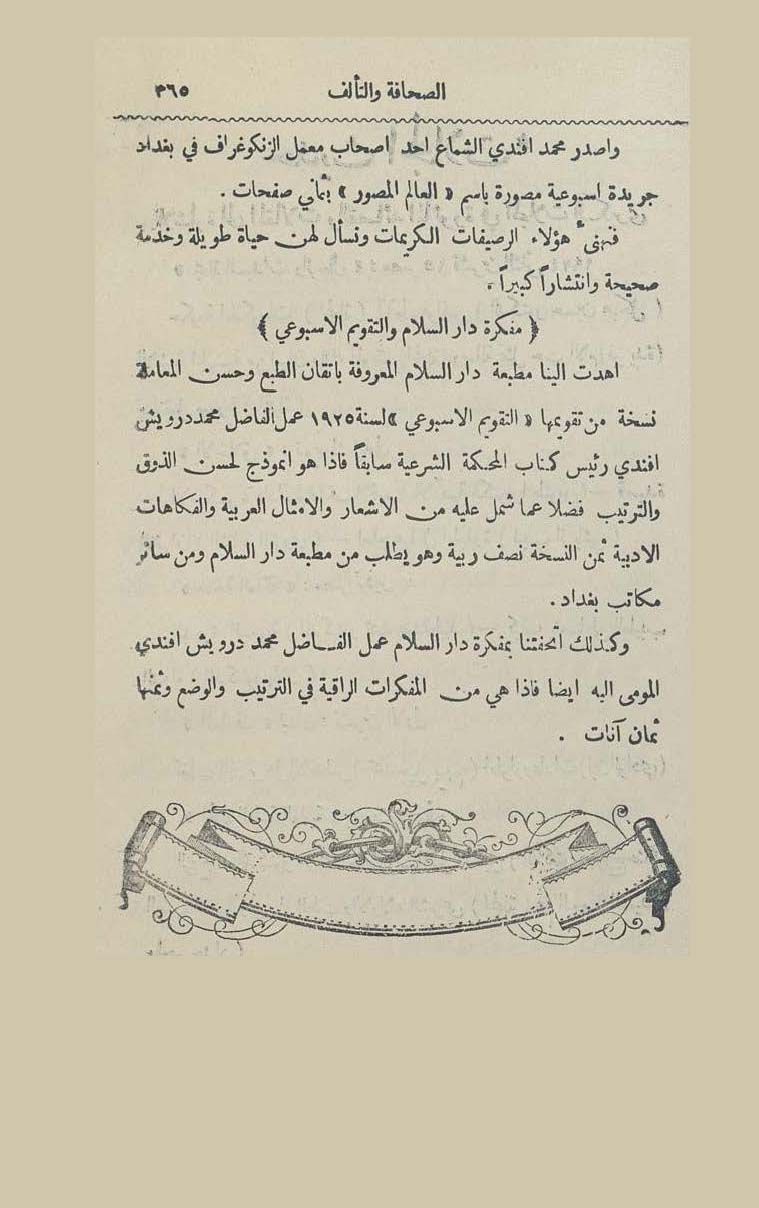 الصحافة والتألف ٣٦٥
واصدر محمد افندي الشماع احد اصحاب معمل الزنكوغراف في بغداد
جريدة اسبوعية مصورة باسم « العالم المصور » بثماني صفحات .
فنهنئ هؤلاء الرصيفات الكريمات ونسأل لهن حياة طويلة وخدمة
صحيحة وانتشاراً كبيراً .
﴿ مفكرة دار السلام والتقويم الاسبوعي ﴾
اهدت الينا مطبعة دار السلام المعروفة باتقان الطبع وحسن المعاملة
نسخة من تقويمها « التقويم الاسبوعي » لسنة ١٩٢٥ عمل الفاضل محمد درويش
افندي رئيس كتاب المحكمة الشرعية سابقاً فاذا هو انموذج لحسن الذوق
والترتيب فضلا عما شمل عليه من الاشعار والامثال العربية والفكاهات
الادبية ثمن النسخة نصف ربية وهو يطلب من مطبعة دار السلام ومن سائر
مكاتب بغداد .
وكذلك اتحفتنا بمفكرة دار السلام عمل الفاضل محمد درويش افندي
المومى اليه ايضا فاذا هي من المفكرات الراقية في الترتيب والوضع وثمنها
ثمان آنات .